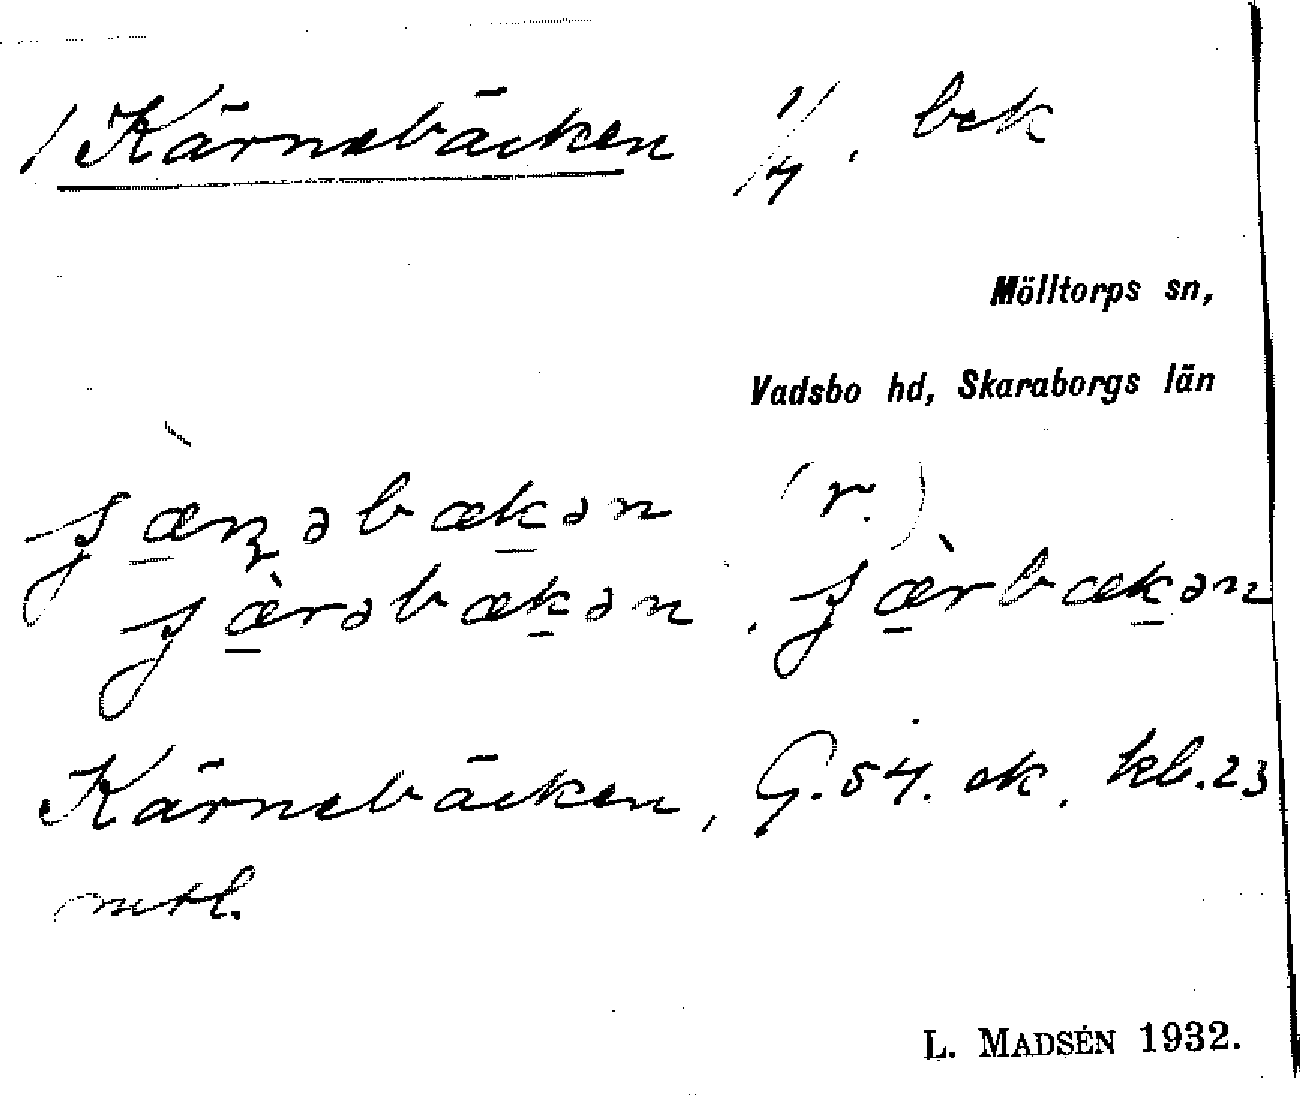 / Kärnebäcken 1/4, bek
Mölltorps sn,
Vadsbo hd, Skaraborgs län
ʃæ̠̀ɳəbæk̠ən (r.)
ʃæ̠̀rəbæk̠ən, ʃæ̠̀rbæk̠ən
Kärnebäcken, G. 54. ek. kb. 23
mtl.
L. MADSÉN 1932.